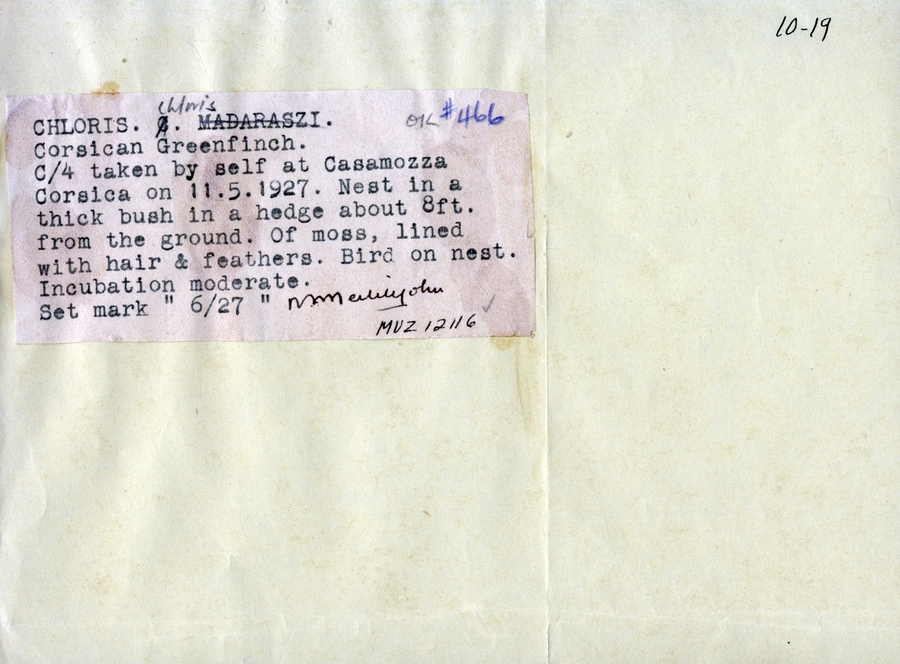 10-19
chloris
CHLORIS. C. MADARASZI. OK #466
Corsican Greenfinch.
C/4 taken by self at Casamozza
Corsica on 11.5.1927. Nest in a
thick bush in a hedge about 8ft.
from the ground. Of moss, lined
with hair & feathers. Bird on nest.
Incubation moderate.
Set mark " 6/27 "
MVZ 12116